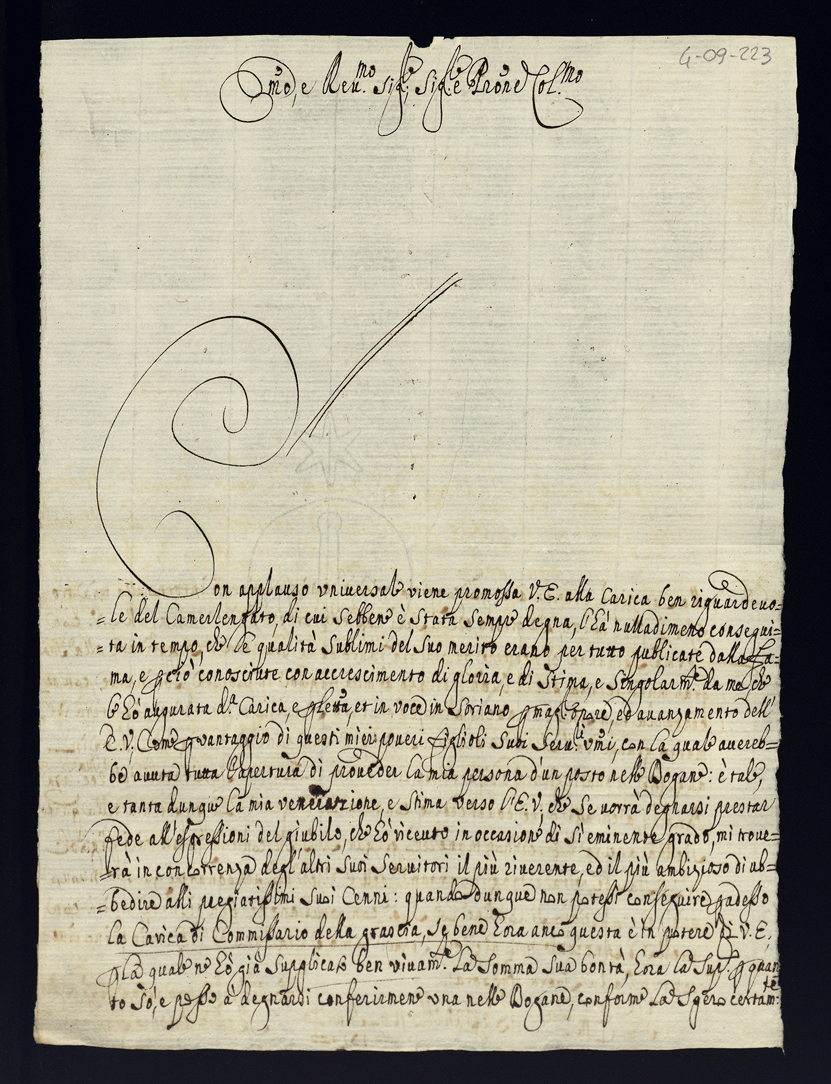 4-09-223
Emō, e Reu.mo Sig.re, Sig.re e Prōne Col.mo
Con applauso vniversale viene promossa V. E. alla Carica ben riguardeuo=
=le del Camerlengato, di cui sebbene è stata sempre degna, l'hà nulladimeno consegui=
=ta in tempo, che le qualità sublimi del suo merito erano per tutto publicate dalla Fa=
ma, e perciò conosciute con accrescimento di gloria, e di stima, e singolarm.te da me, che
le hò augurata d.a Carica, e per lettā, et in voce in Soriano per maggiore, ed auanzamento dell'
E. V, Come per vantaggio di questi miei poueri figlioli suoi Seru.li vmi, con la quale auereb=
be auuta tutta l'apertura di proueder la mia persona d'un posto nelle Dogane: è tale,
e tanta dunque la mia venerazione, e stima verso l'E. V, che se uorrà degnarsi prestar
fede all'espressioni del giubilo, che hò riceuto in occasione di sì eminente grado, mi troue=
=rà in concorrenza degl'altri suoi Seruitori il più riuerente, ed il più ambizioso di ub=
=bedire alli pregiatissimi suoi Cenni: quando dunque non potessi conseguire per adesso
la Carica di Commissario della grascia, se bene hora anco questa è in potere di V. E,
per la quale ne hò già supplicato ben viuam.te la somma sua bontà, hora la sup.co per quan
to sò, e posso à degnarsi conferirmene vna nelle Dogane, conforme la spero certam.te: